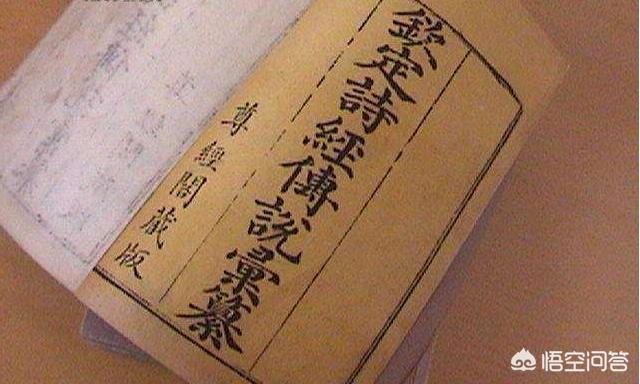 欽定詩經傳說彙纂
尊經閣藏版
悟空问答